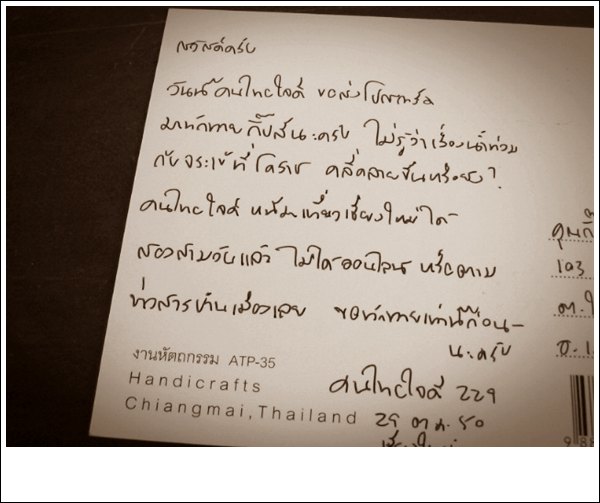 สวัสดีครับ
วันนี้ คนไทยใจดี ขอส่งโปสการ์ด
มาทักทายกิ๊ปส์นะครับ ไม่รู้ว่าเรื่องน้ำท่วม
กับจระเข้ที่โคราช คลี่คลายขึ้นหรือยัง?
คนไทยใจดี หนีมาเที่ยวเชียงใหม่ได้
สองสามวันแล้ว ไม่ได้ออนไลน์ หรือตาม
ข่าวสารบ้านเมืองเลย ขอทักทายเท่านี้ก่อน-
นะครับ
คนไทยใจดี 229
29 ต.ค. 50
งานหัตถกรรม ATP-35
Handicrafts
Chiangmai, Thailand
103